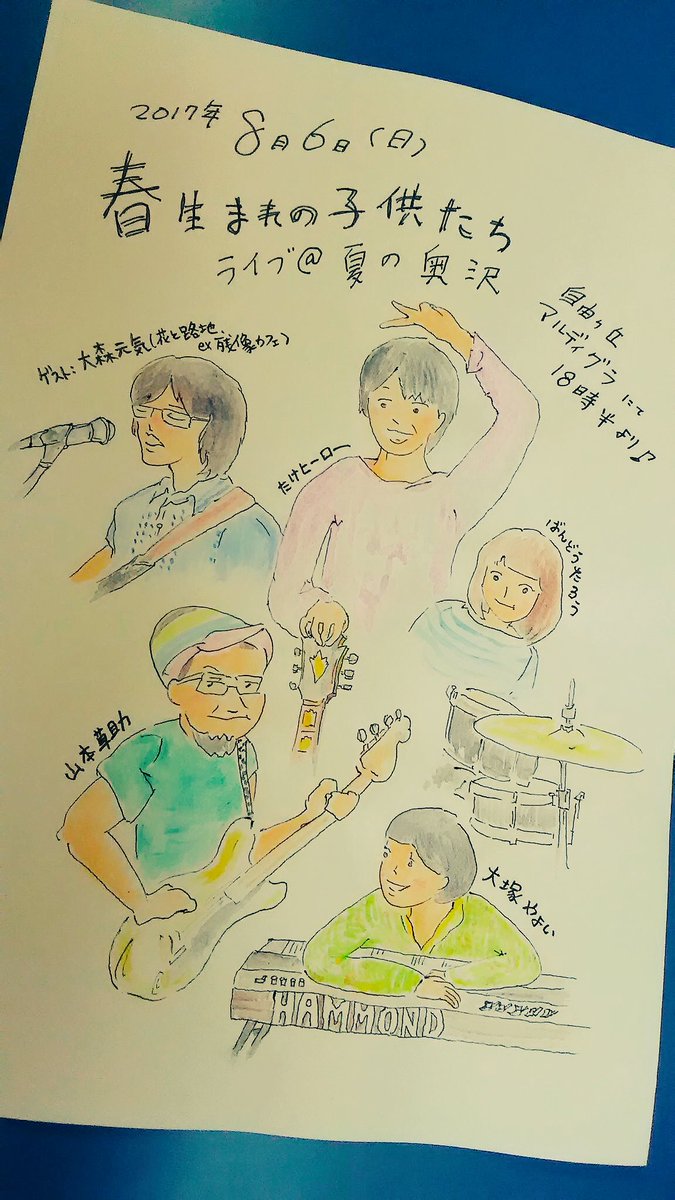 2017年 8月6日(日)
春生まれの子供たち
ライブ@夏の奥沢
自由ヶ丘
マルディグラにて
18時半より♪
ゲスト:大森元気(花と路地、
ex残像カフェ)
たけヒーロー
ばんどうたろう
山本草助
大塚やよい
HAMMOND